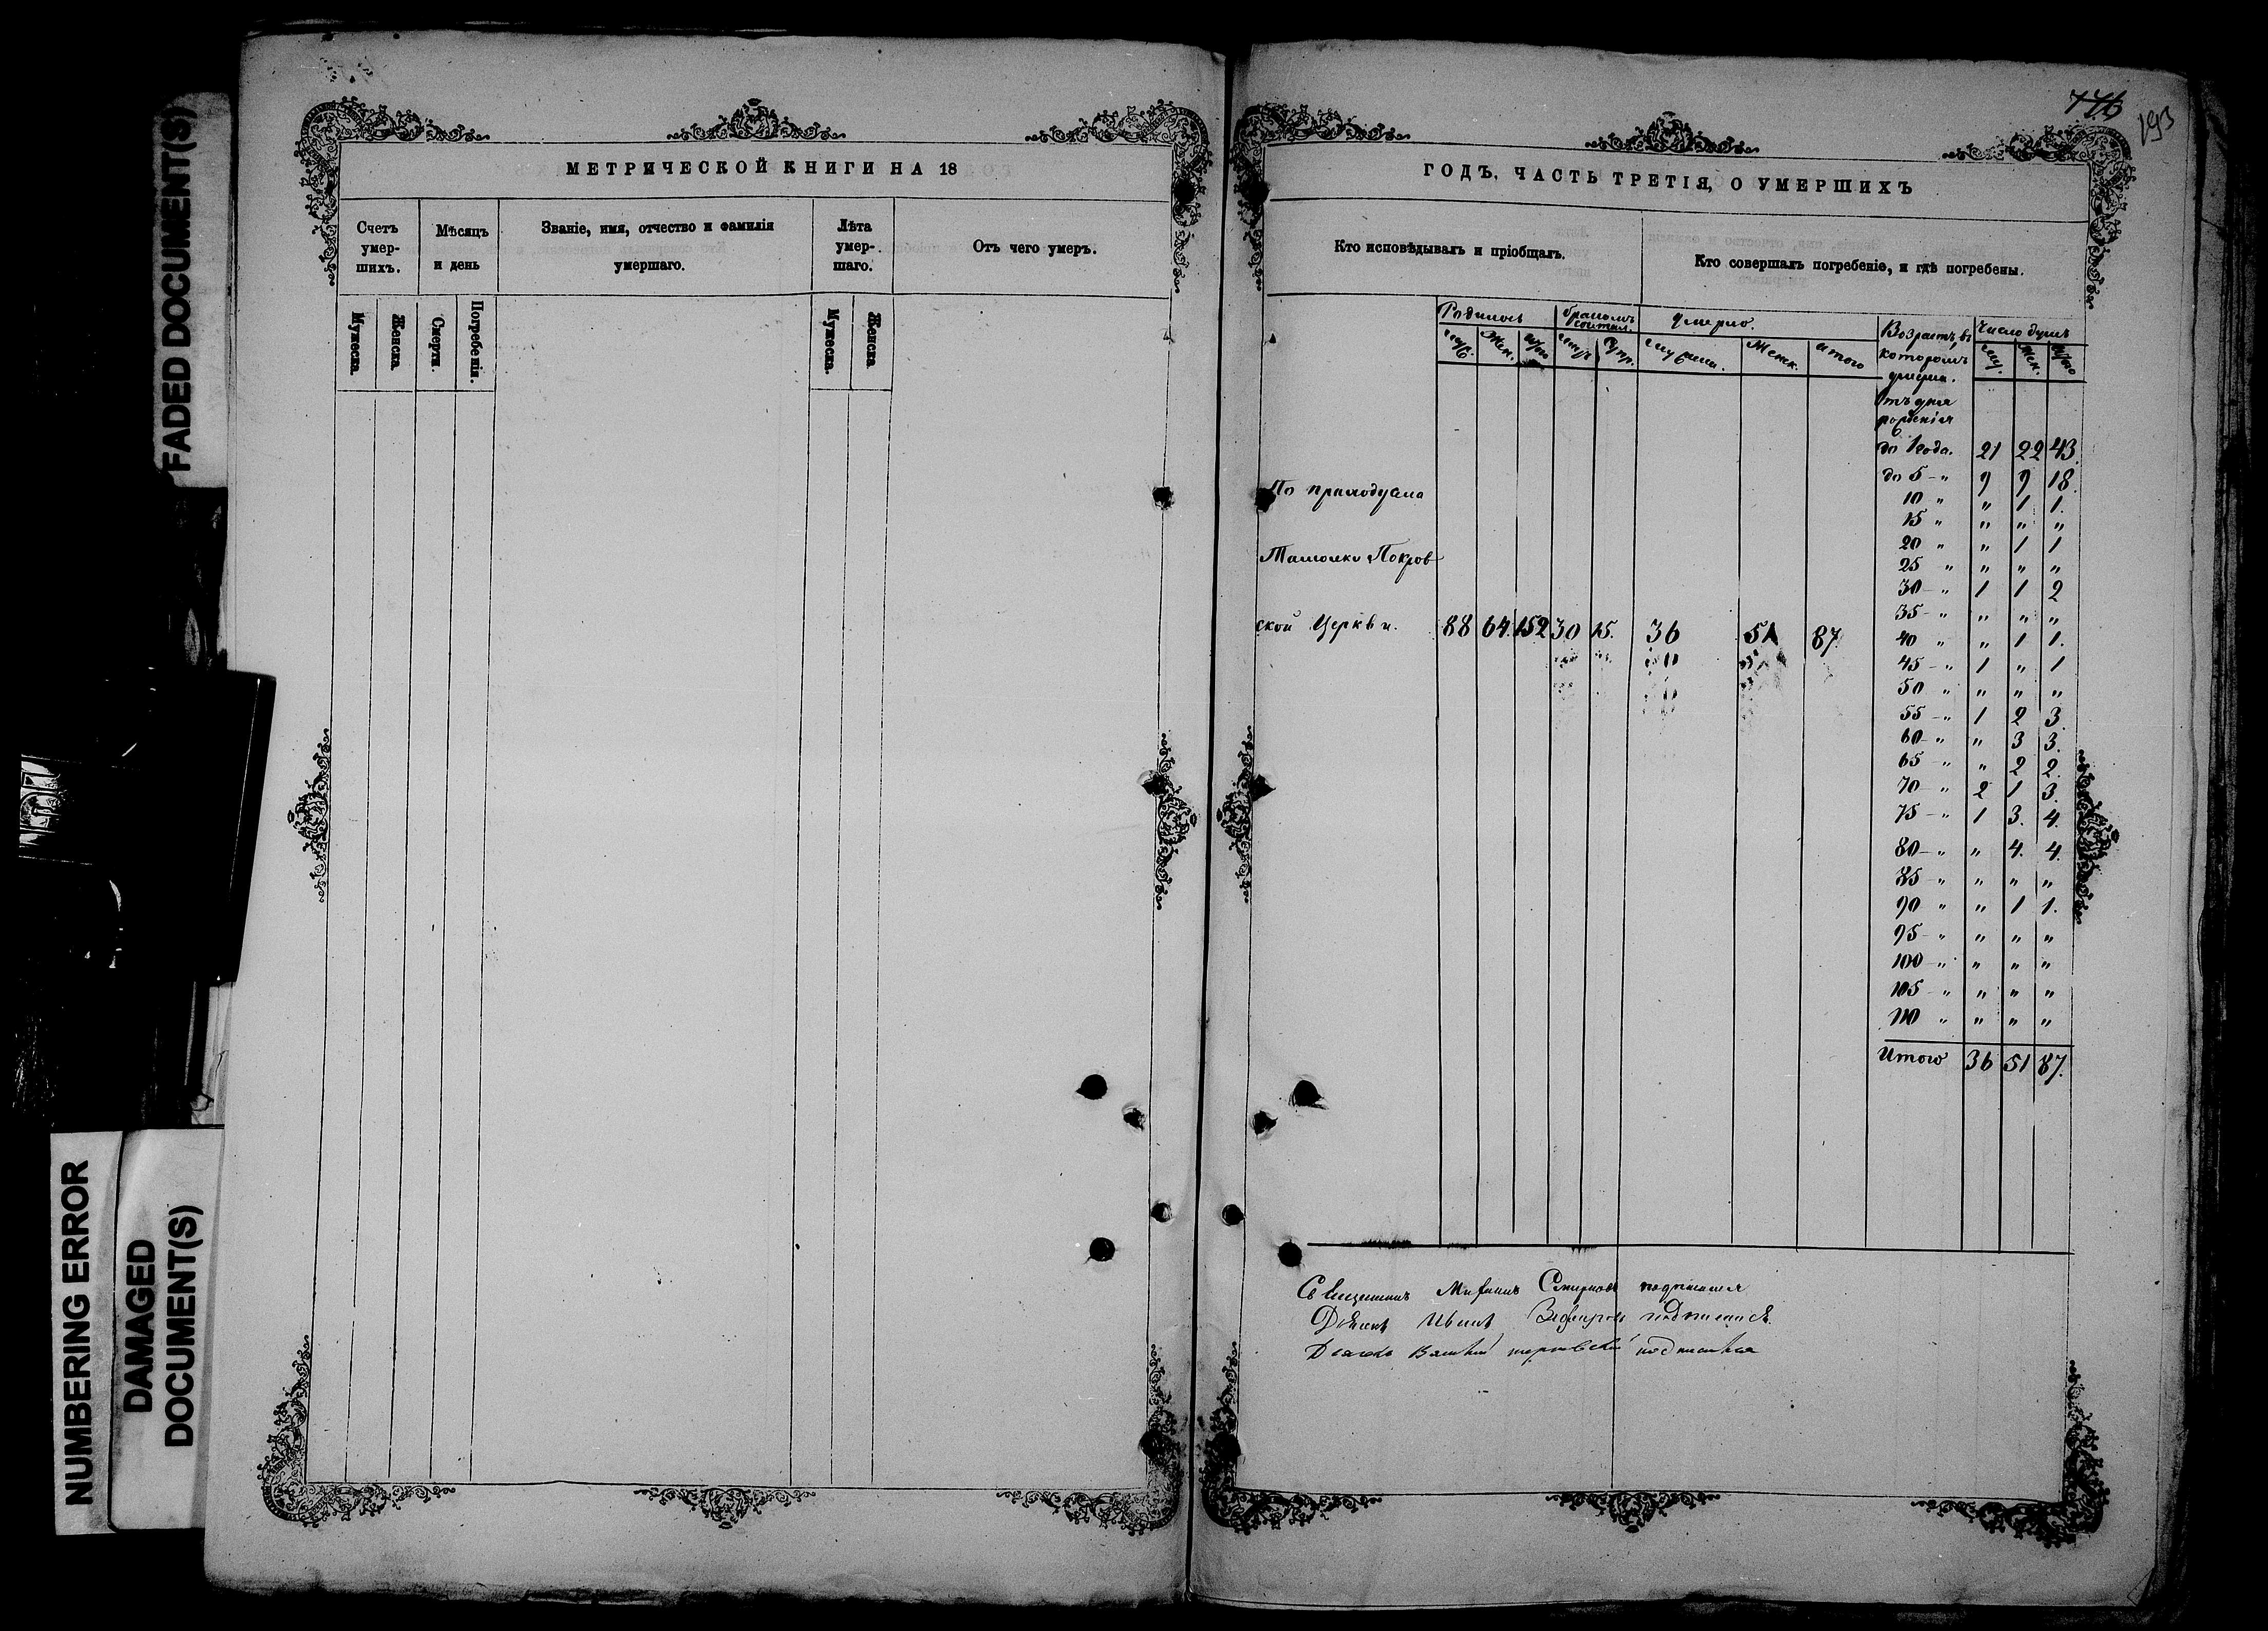 FADED DOCUMENT(S)
NUMBERING ERROR
DAMAGED
DOCUMENT(S)
МЕТРИЧЕСКОЙ КНИГИ НА 18
Счетъ умер-шихъ.
Мѣсяцъ и день
Званіе, имя, отчество и фамилія умершаго.
Лѣта умер-шаго.
Отъ чего умеръ.
Мужеска. Женска Смерти. Погребенія. Мужеска. Женска
193
ГОДЪ, ЧАСТЬ ТРЕТІЯ, О УМЕРШИХЪ
Кто исповѣдывалъ и пріобщалъ.
Кто совершалъ погребеніе, и гдѣ погребены.
Родилось
Умерло.
Возрастъ, въ которомъ умерли.
Число душъ
Муж. Жен. Итого
Женск. итого
Муж. Жен. Итого
Отъ дня
рожденія
до 1 года. 21 22 43.
до 5 - " 9 9 18.
10 " " 1 1.
15 " " " "
20 " " 1 1
25 " " " "
30 - " 1 1 2
35 - " " " "
40 " " 1 1.
45 - " 1 " 1
50 " " " "
55 - " 1 2 3
60 - " " 3 3.
65 - " " 2 2.
70 - " 2 1 3.
75 - " 1 3. 4.
80 - " " 4. 4.
85 - " " " "
90 " " 1 1.
95 - " " " "
100 - " " " "
105 - " " " "
110 " " " "
Итого 36 51 87.
По
Покров
ской Церкви. 88 64. 152 30 15. 36 51 87.
Смирновъ
Иванъ